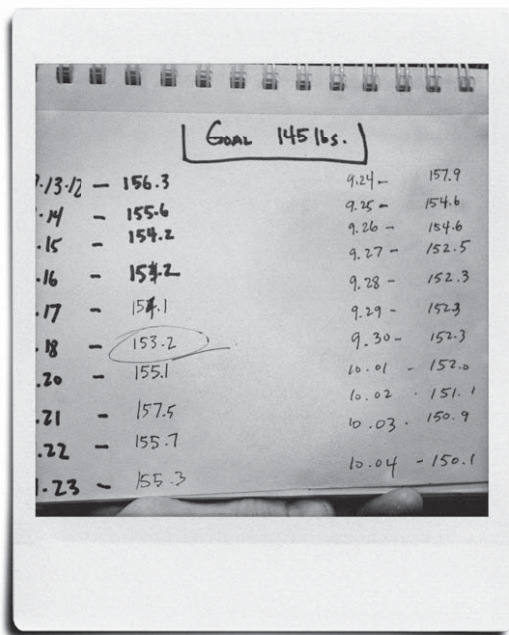 GOAL 145 lbs.
.13.12 – 156.3
.14 – 155.6
.15 – 154.2
.16 – 154.2
.17 – 154.1
.18 – 153.2
.20 – 155.1
.21 – 157.5
.22 – 155.7
.23 – 155.3
9.24 – 157.9
9.25 – 154.6
9.26 – 154.6
9.27 – 152.5
9.28 – 152.3
9.29 – 152.3
9.30 – 152.3
10.01 – 152.0
10.02 · 151.1
10.03 · 150.9
10.04 – 150.1